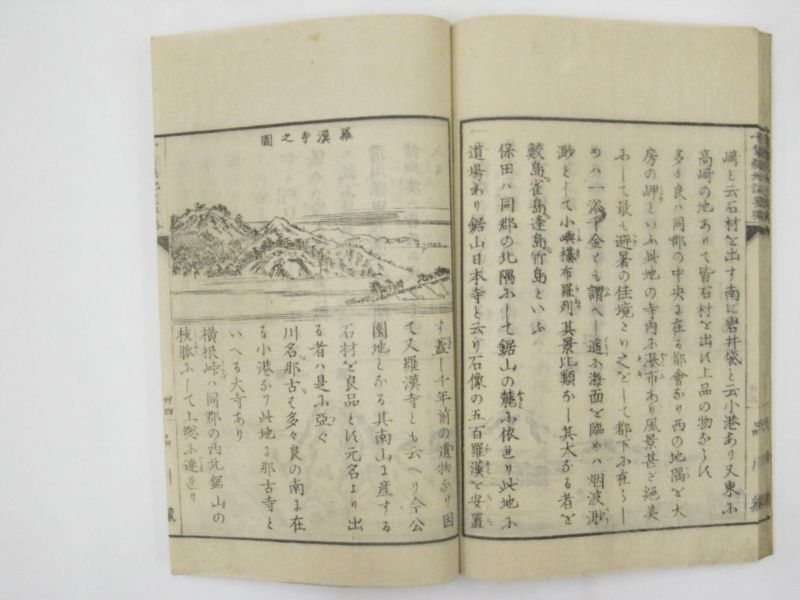 﨑と云石材を出す南に岩井袋と云小港あり又東ふ
高﨑の地ありて皆石材を出せ𪜈上品の物ならバ
多々良ハ同郡の中央に在る都會なり西の地隅を大
房の岬といふ此地の寺内ふ瀑布あり風景甚ど絶美
ふして最も避暑の佳境とり之をして都下ふ在らし
めハ一浴千金とも謂へし遥ふ海面を臨めハ烟波渺
渺として小嶼棊布羅列其景比類なし其大なる者を
鮫島雀島逢島竹島といふ
保田ハ同郡の北隅ふして鋸山の麓ふ依れり此地ふ
道場あり鋸山日本寺と云り石像の五百羅漢を安置
羅漢寺之圖
す蓋し千年前の遺物なり因
て又羅漢寺とも云へり今公
園地となる其南山に産する
石材を良品とに元名より出
る者ハ是ふ亞ぐ
川名那古ハ多々良の南に在
る小港なり此地に那古寺と
いへる大寺あり
横根峠ハ同郡の西北鋸山の
枝脈ふして上総ふ連れり